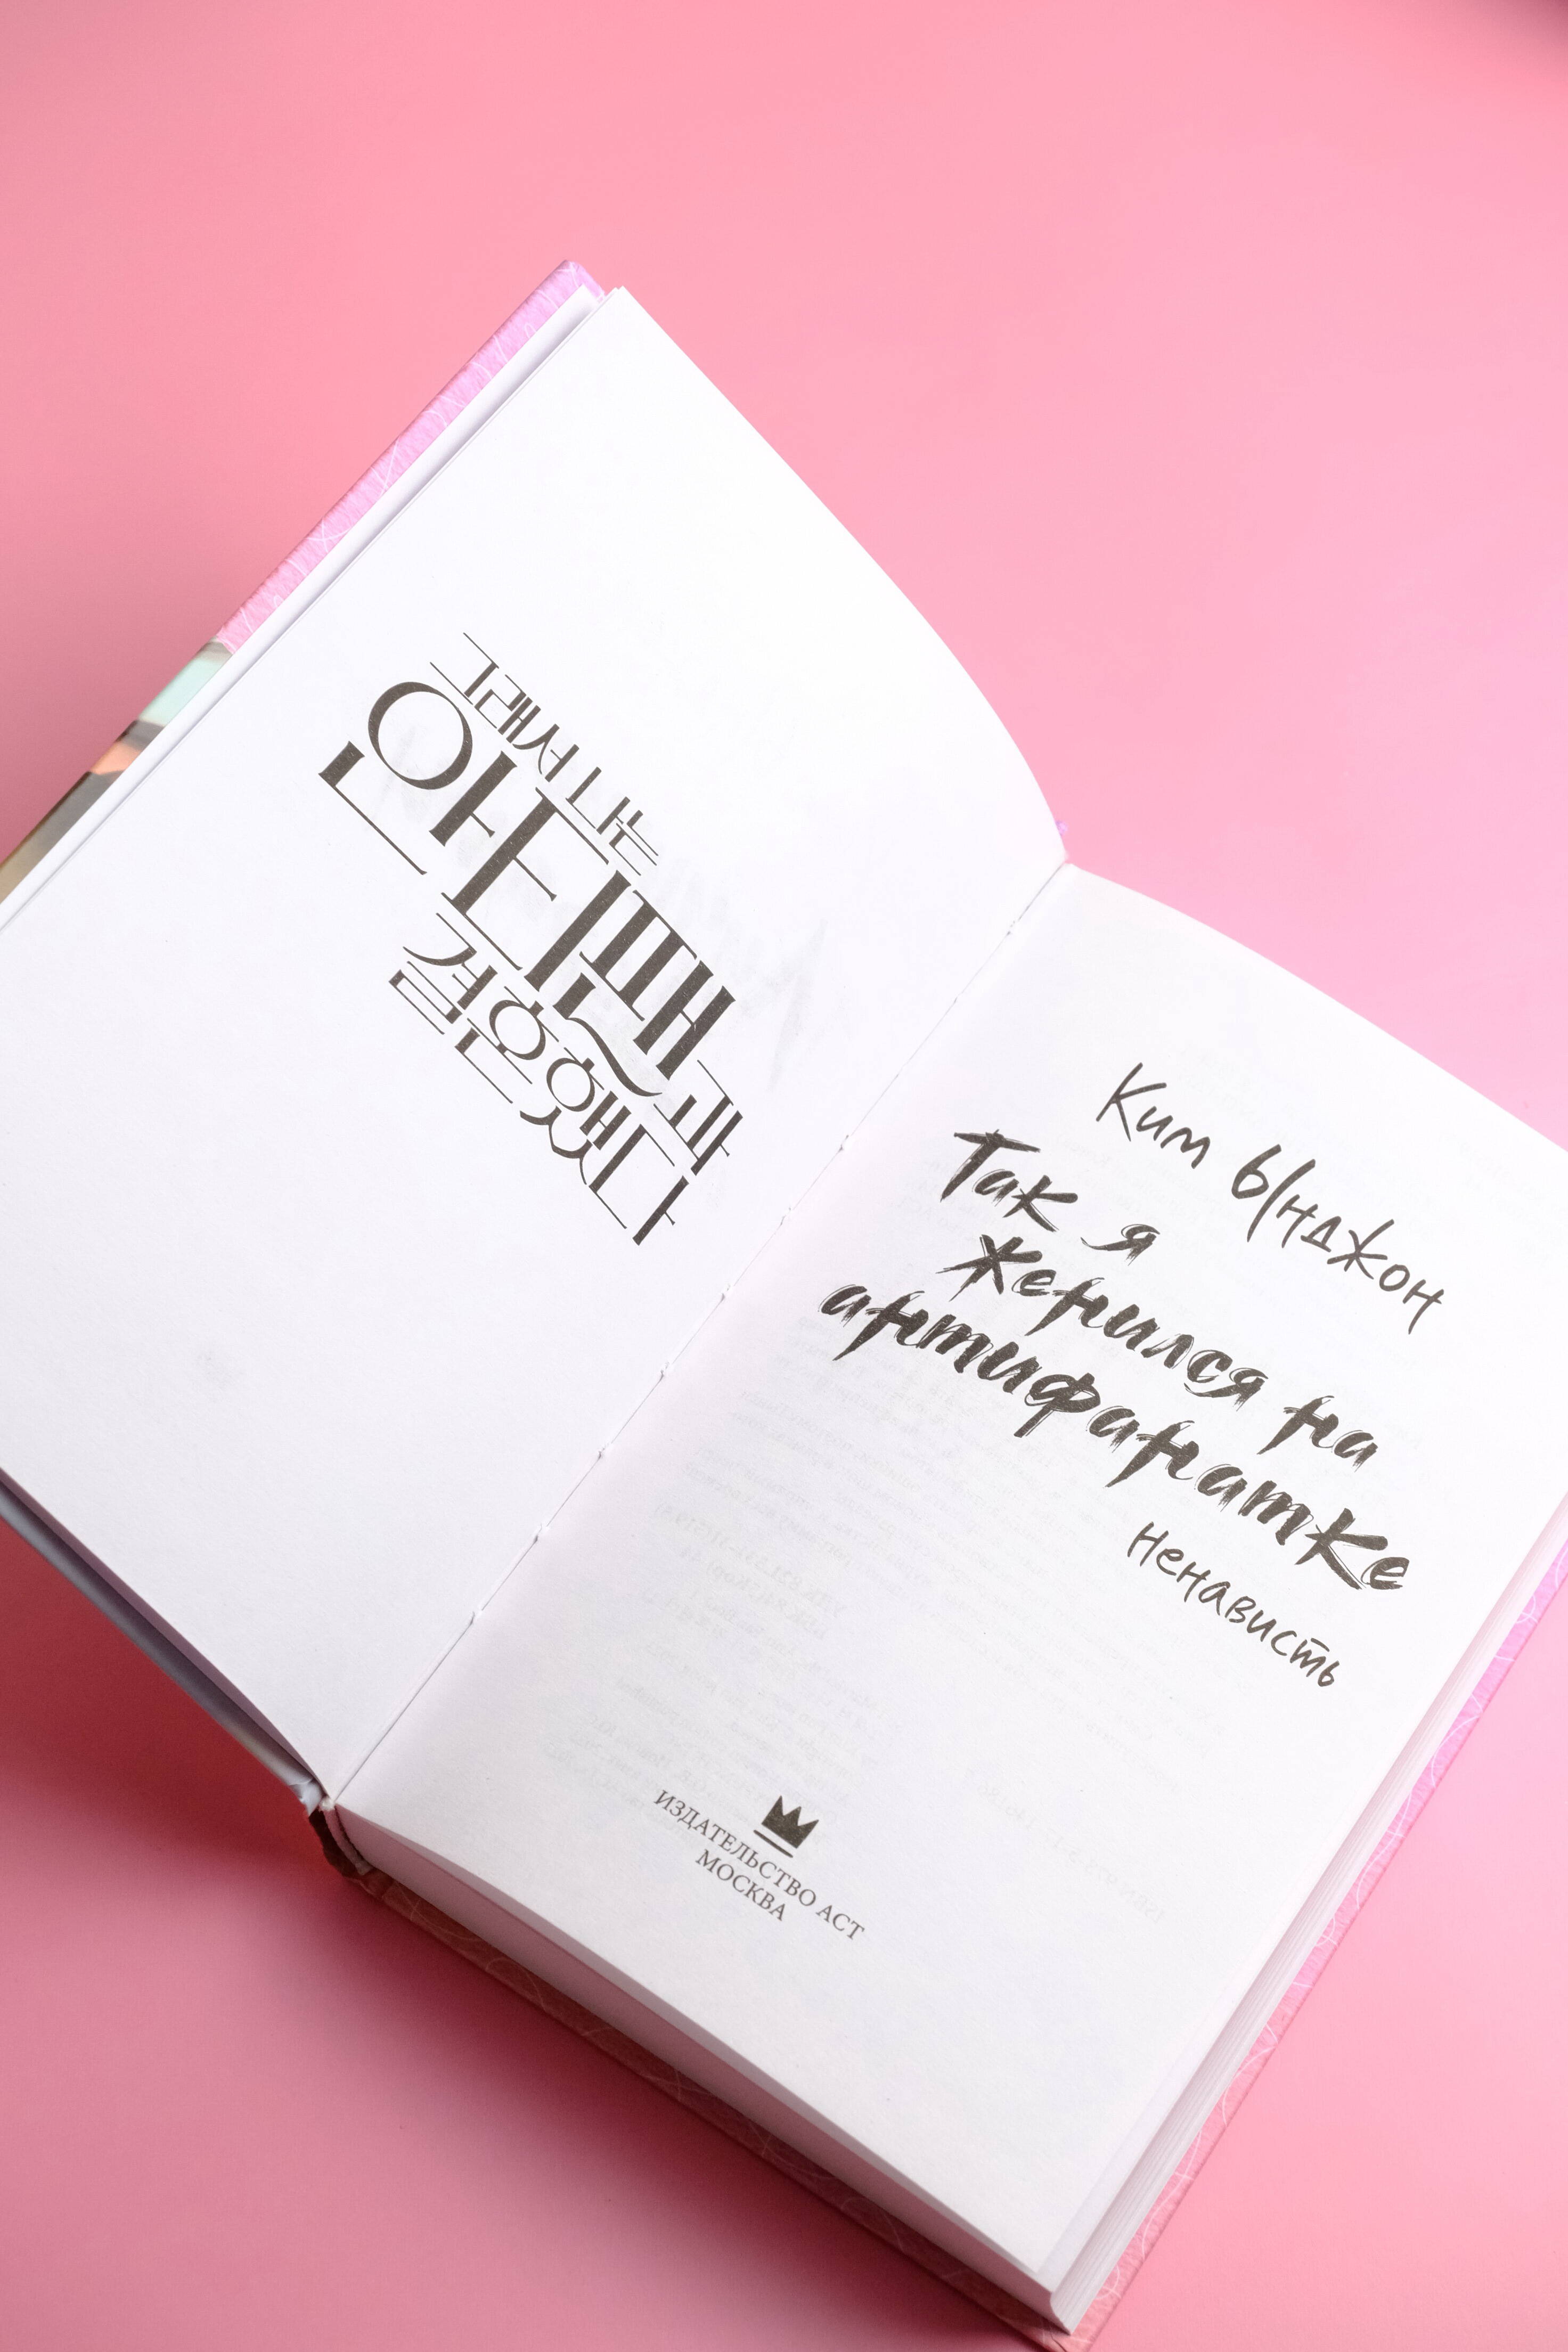 그래서 나는
안티팬과
결혼했다
Ким Ынджон
Так я
женился на
антифанатке
Ненависть
ИЗДАТЕЛЬСТВО АСТ
МОСКВА